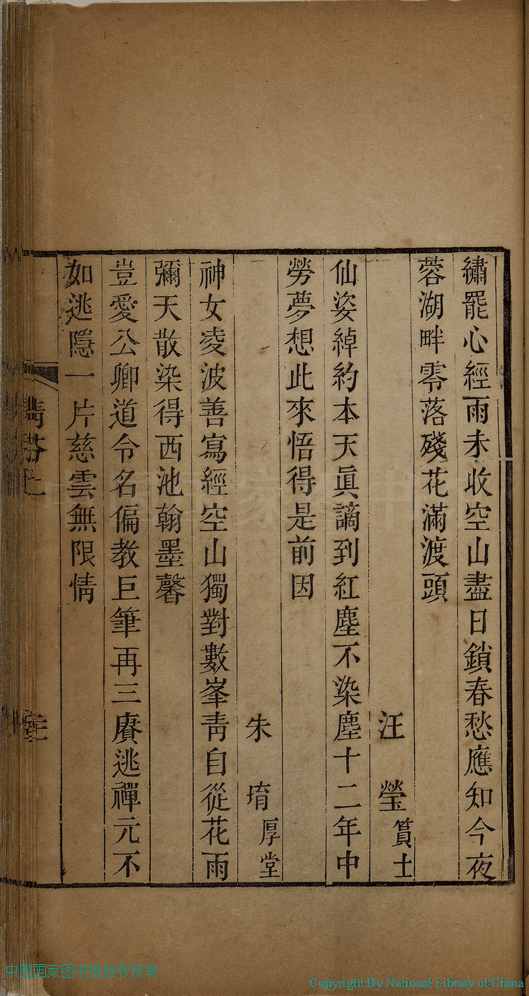 繡罷心經雨未收空山盡日鎖春愁應知今夜
蓉湖畔零落殘花滿渡頭
汪瑩賞士
仙姿綽約本天眞謫到紅塵不染塵十二年中
勞夢想此來悟得是前因
朱堉厚堂
神女凌波善寫經空山獨對數峯靑自從花雨
彌天散染得西池翰墨馨
豈愛公卿道令名偏教巨筆再三賡逃禪元不
如逃隱一片慈雲無限情
中国国家图书馆版权所有
Copyright By National Library of China